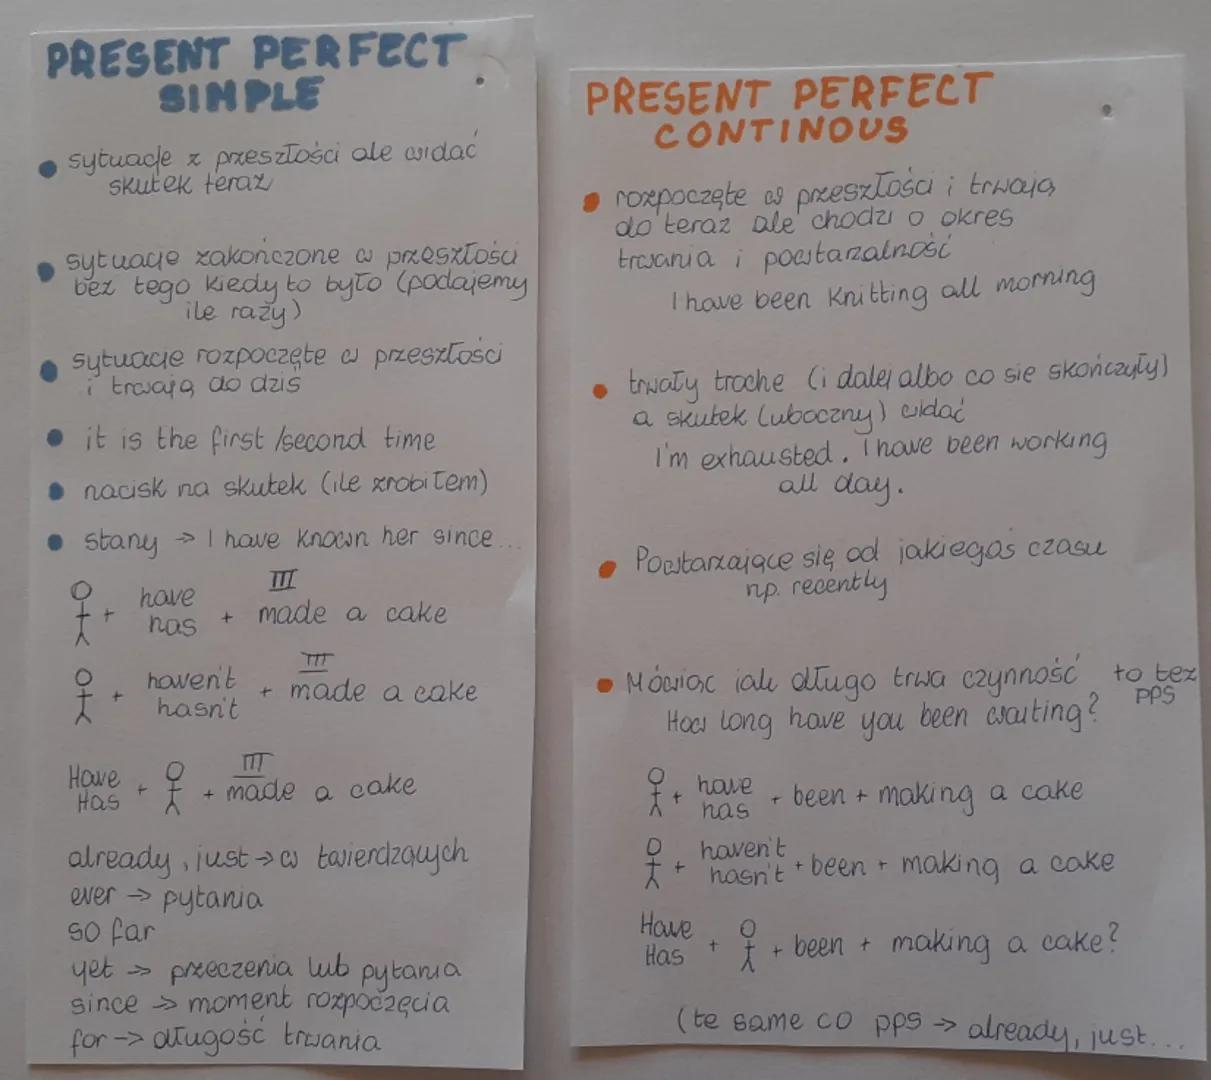 PRESENT PERFECT
SIMPLE
• sytuacje z przeszłości ale widać
skutek teraz
• sytuacje zakończone w przeszłości
bez tego kiedy to było (podajemy
ile razy)
• sytuacje rozpoczęte w przeszłości
i trwają do dziś
• it is the first /second time
• nacisk na skutek (ile zrobiłem)
• stany → I have known her since...
III
+ have
has + made a cake
III
+ haven't
hasn't + made a cake
III
Have
Has + + made a cake
already, just → w twierdzących
ever → pytania
so far
yet → przeczenia lub pytania
since → moment rozpoczęcia
for → długość trwania
PRESENT PERFECT
CONTINOUS
• rozpoczęte w przeszłości i trwają
do teraz ale chodzi o okres
trwania i powtarzalność
I have been knitting all morning
• trwały troche (i dalej albo co sie skończyły)
a skutek (uboczny) widać
I'm exhausted. I have been working
all day.
• Powtarzające się od jakiegoś czasu
np. recently
• Mówiąc jak długo trwa czynność to też
PPS
How long have you been waiting?
+ have
has + been + making a cake
+ haven't
hasn't + been + making a cake
Have
Has + + been + making a cake?
(te same co pps → already, just...